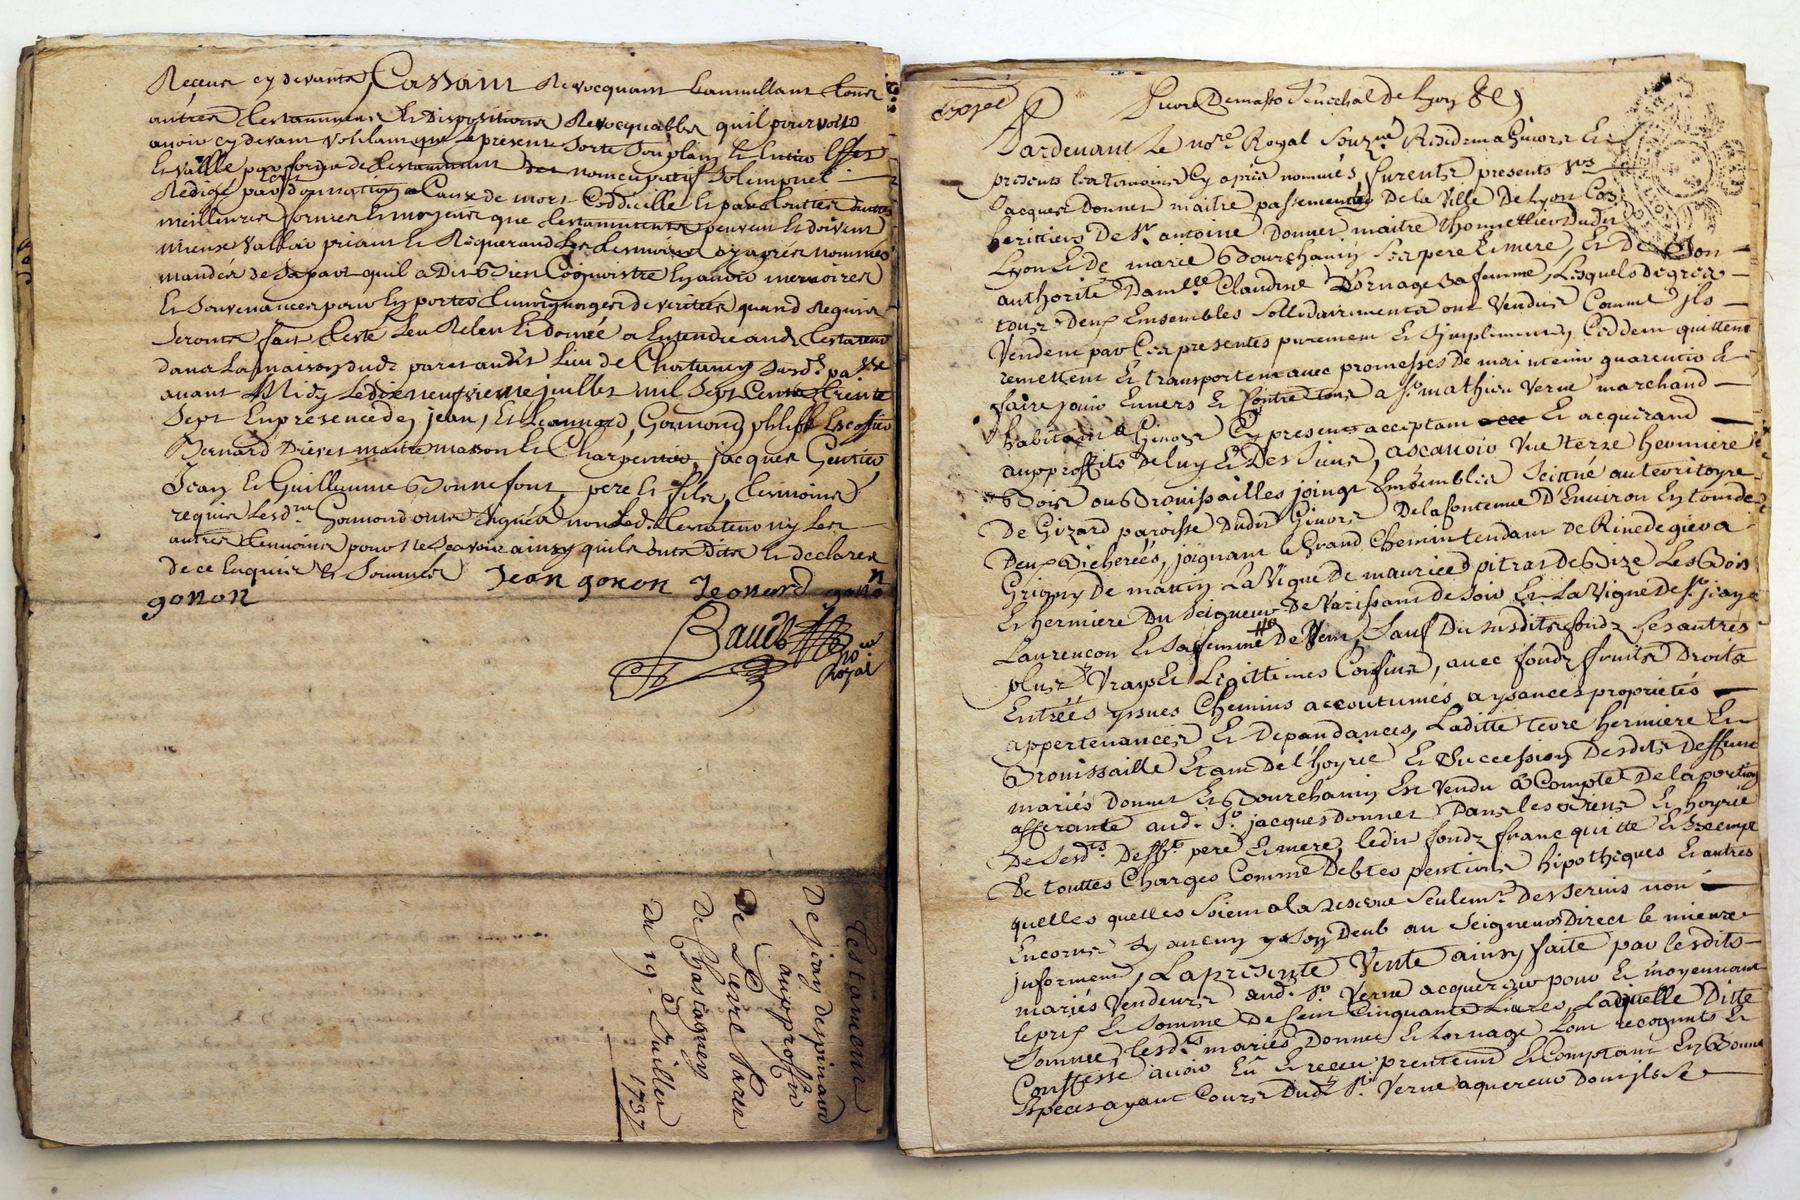 Receus cy devants, Cassant Revocquant Eannullant tous
autres testaments Et Dispositions Revocquables quil pourvoit
avoir cy devant voulant que le present Sorte Son plain Et Entier Effet
Et Vallle par forme de testament nomcupatif Solempnel
Redigé par donnation a Cause de mort Coddicille Et par touttes autres
meilleures formes Et moyens que testaments peuvent Et doivent
mieux Valloir priant Et Requerand les tesmoins cy après nommés
mandés de sa part quil a Dit Bien Cognoistre En avoir memoires
Et Souvenances pour En porter temoignages de verités quand Requis
Seronts fait Leu Releu Et donné a Entendre aud. testateur
dans La maison dud. lieu de Chatanex Susd. pa.sse
avant Midy Le dixneufvieme juillet mil Sept Cents trente
Sept En presence de jean, Et Leonnard, Gormond,
Bernard maitre masson Et Charpentier, jacques
Jean Et Guillaume Bonnefont, pere Et fils, temoins
requis Lesd. Gormond onts signés non led. testateur ny les
autres temoins pour ne Scavoir ainsy quils onts dits Et declarés
de ce Enquis Et Sommés Jean gonon Leonard gonon
gonon
Baud
no.re
Royal
Testament
De jean depinard
aux proffits
De Pierre Parer
De Chastagnery
Du 19. Juillet
1737
Expedié
Givors Demasso Senechal de Lyon &c
Pardevant Le no.re Royal Souz.né Residen a Givors Et
presents les temoins Cy après nommés furents presents S.rs
Jacques Donnet maitre passementier De la Ville De Lyon Coo
heritiers De S.r antoine Donnet maitre thonnellier dudit
Lyon Et De marie Bourchanin Ses pere Et mere, Et De Son
authorité Dam.lle Claudine Dornage Sa femme, Lesquels de gres
tous Deux Ensembles Sollidairements ont Vendus Comme ils
Vendent par Ces presentes purement Et Simplement, Ceddent quittent
remettent Et transportent avec promesses de maintenir guarentir Et
faire jouir Envers Et Contre tous a S.r mathieu Verne marchand
habitant a Givors Cy present acceptant Et acquerand
aux proffits De luy Et Des Siens, ascavoir Une terre hermiere
Bois ou Brouissailles joingt Ensembles Scitué au territoyre
De Gizard paroisse Dudit Givors De la Contenue D'Environ En tout de
Deux Bicherées, joignant le Grand Chemin tendant de Rivedegier a
Grigny De matin La Vigne De maurice pitrat De Bize Les Bois
Et hermiere Du Seigneur De Varissant de Soir Et La Vigne De S.r jean
Laurencon Et Sa femme De Vent, Sauf Du Susdits fondz Ses autres
plus Vrays Et Legittimes Confins, avec fondz fruits Droits
Entrées yssues Chemins accoutumés aysances proprietés
appertenances Et Depandances, Laditte terre hermiere Et
Brouissaille Etant De l'hoyrie Et Succession Desdits Deffunt
mariés Donnet Et Bourchanin Est Vendu a Compte De la portion
afferante aud. S.r jacques Donnet Dans les Biens Et hoyrie
De Sesd.ts Deff.ts pere Et mere, ledit fondz franc quitte Et Exempt
De touttes Charges Comme Debtes pentions hipotheques Et autres
quelles quelles Soient a la reserve Seulem.t des servis non
Encorus Sy aucuny y Soy Deub au Seigneur Direct le mieux
informent, La presente Vente ainsy faite par lesdits
mariés Vendeurs aud. S.r Verne acquereur pour Et moyennant
le prix Et Somme De Cent Cinquante Livres, Laquelle Ditte
Somme, lesd.ts mariés Donnet Et Dornage L'ont recognuts Et
Conffesse avoir Eu Et receu prentend Et Comptant En Bonne
Especes ayant Cours Dud. S.r Verne aquereur Dont ils Se